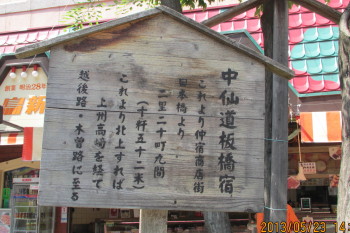 中仙道板橋宿
これより仲宿商店街
日本橋より
二里二十町九間
(十粁五十二米)
これより北上すれば
上州高崎を経て
越後路・木曽路に至る
創業 明治28年
2013/05/23 14